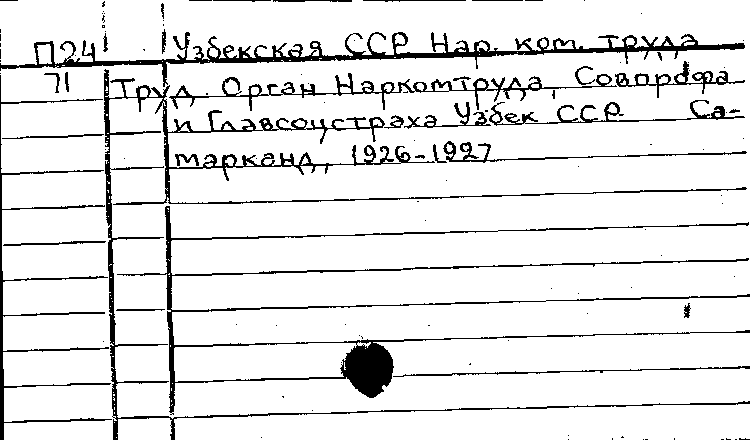 П24 Узбекская ССР Нар. ком. труда
71 Труд. Орган Наркомтруда, Совпрофа
и Главсоцстраха Узбек ССР Са-
марканд, 1926-1927